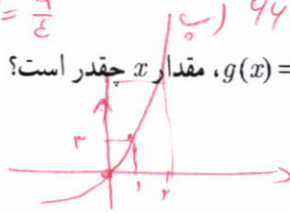 = ۹/٤ ب) ۹۹
g(x) =، مقدار x چقدر است؟
۳
۱ ۲